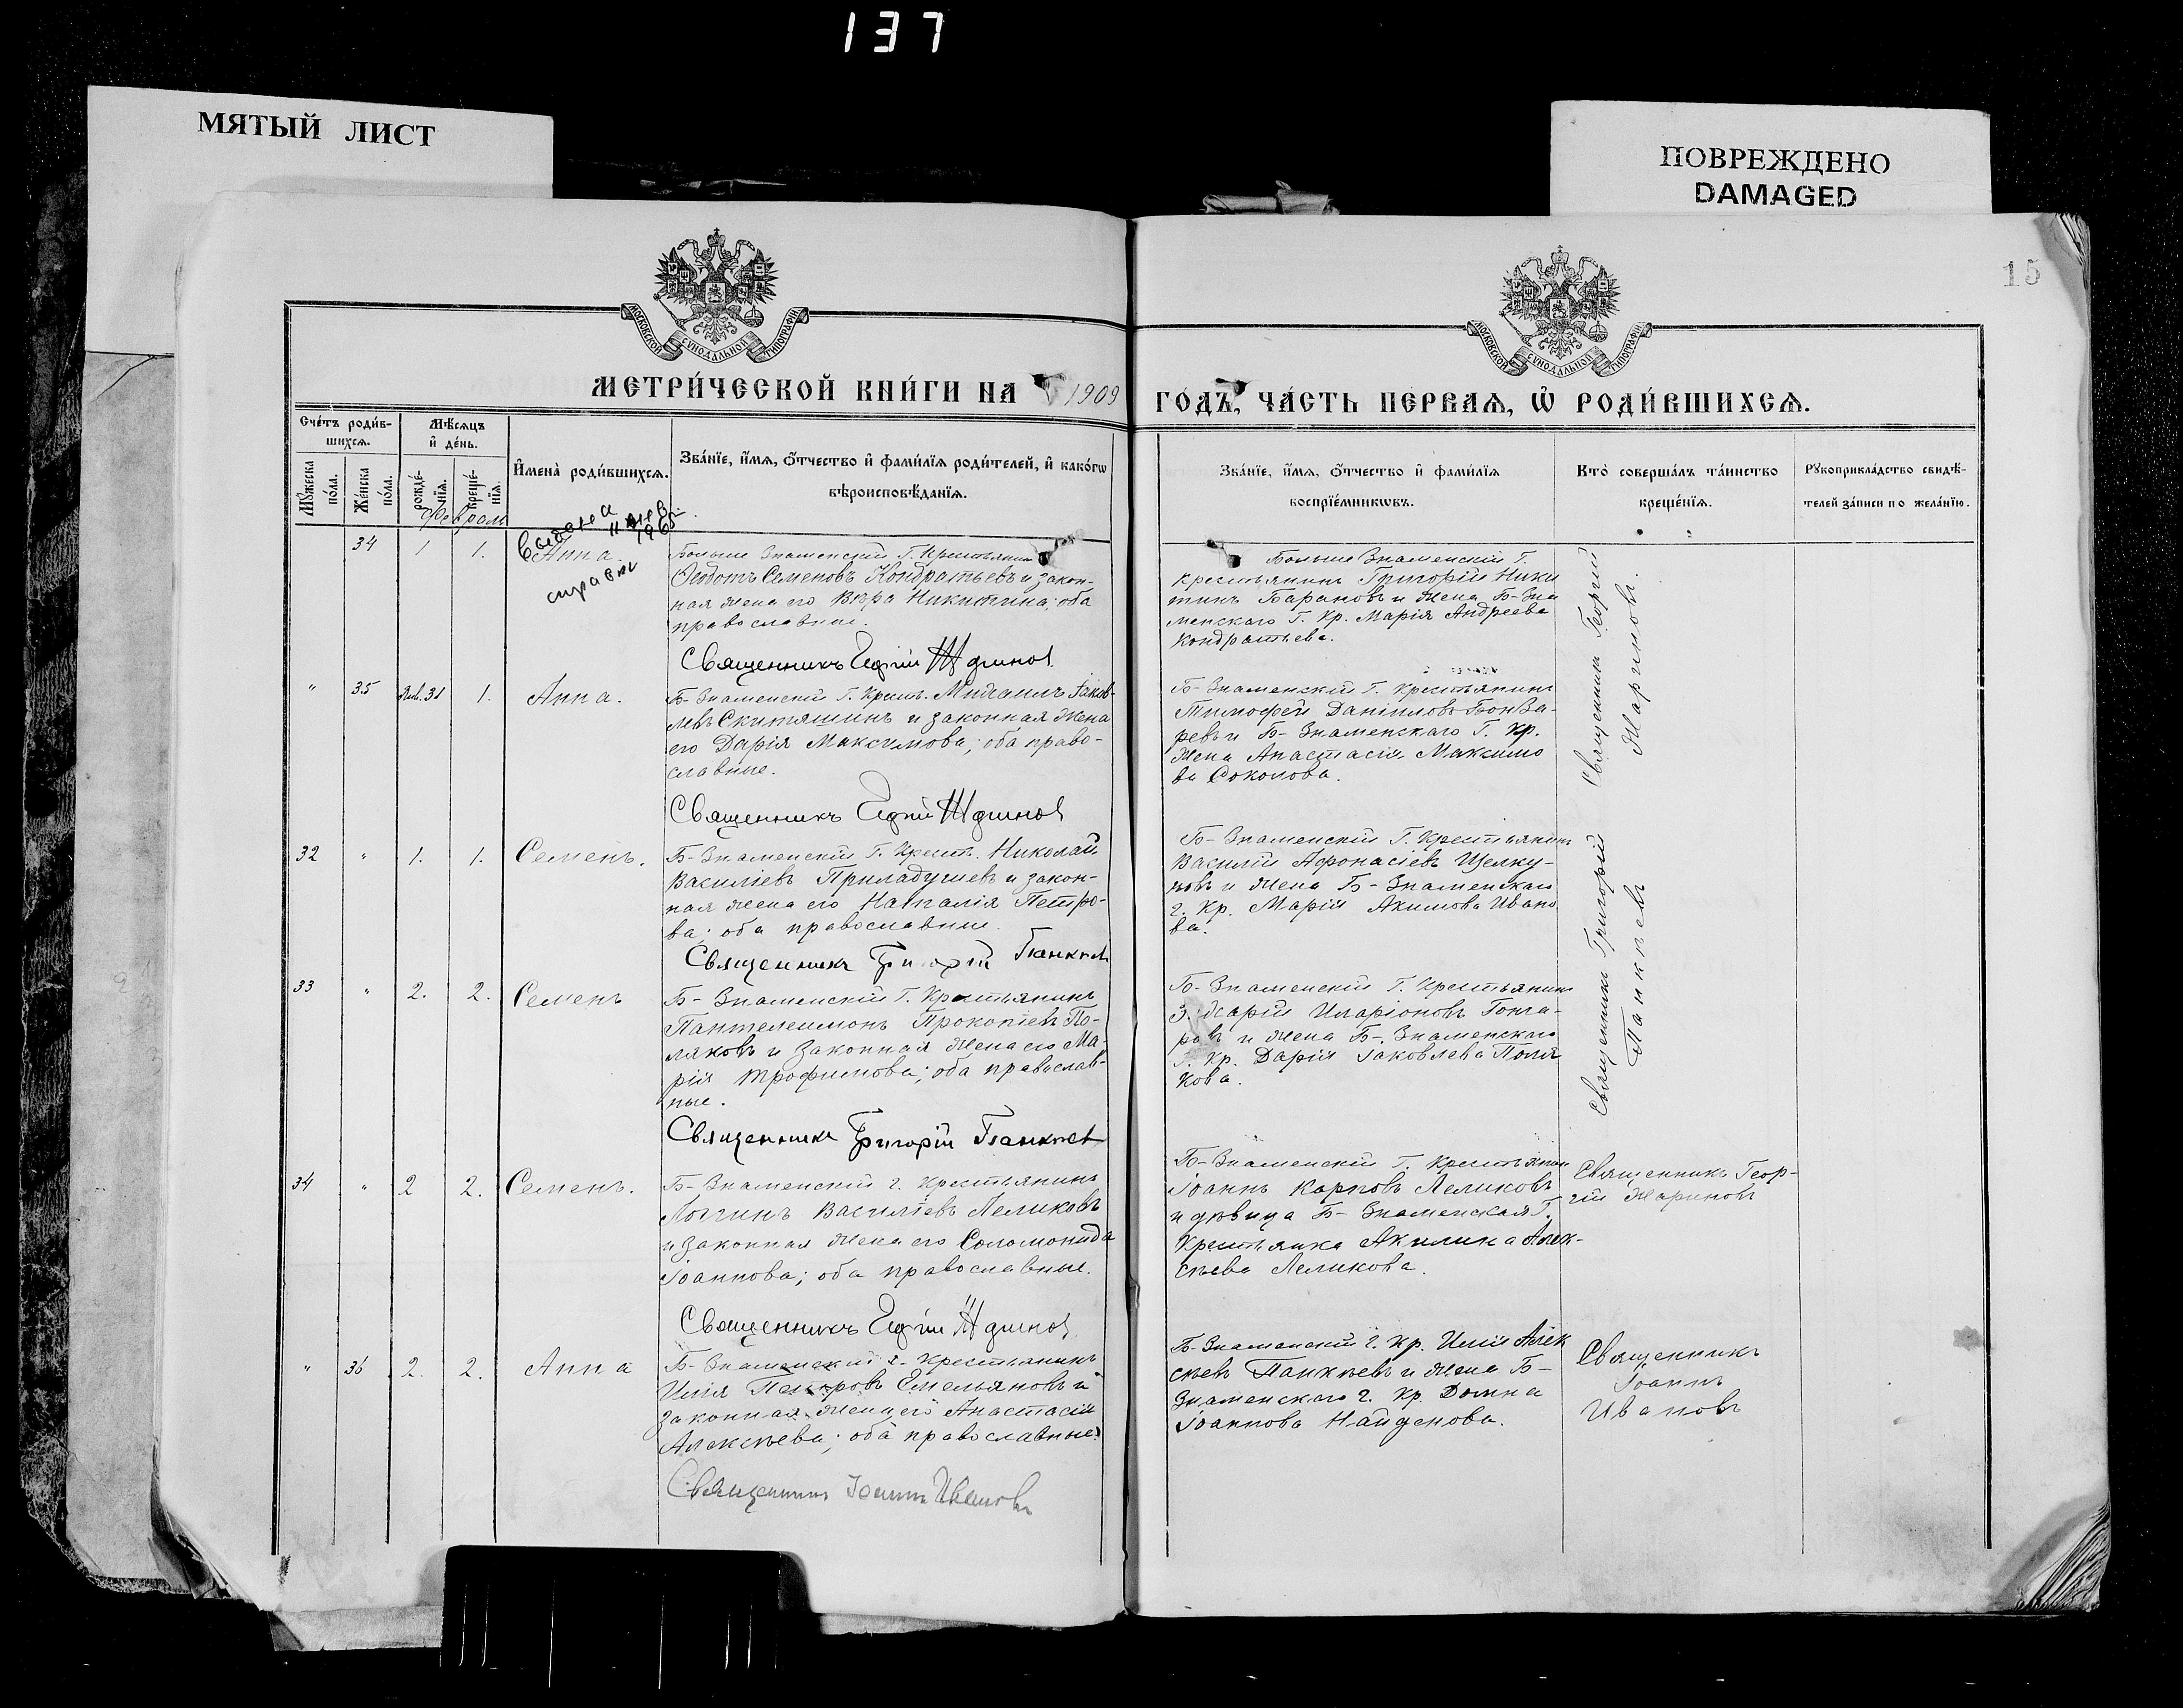 137
МЯТЫЙ ЛИСТ
ПОВРЕЖДЕНО
DAMAGED
15
МОСКОВСКОЙ СѴНОДАЛЬНОЙ ТИПОГРАФІИ
МОСКОВСКОЙ СѴНОДАЛЬНОЙ ТИПОГРАФІИ
МЕТРИ́ЧЕСКОЙ КНИ́ГИ НА 1909
ГО́ДЪ, ЧА́СТЬ ПЕ́РВАЯ, Ѡ РОДИ́ВШИХСЯ.
Сче́тъ роди́в-
шихся.
Мѣ́сяцъ
и҆ де́нь.
Мꙋ́жеска
по́ла.
Же́нска
по́ла.
рожде́-
нїя.
креще́-
нїя.
И҆мена̀ роди́вшихся.
Зва́нїе, и҆́мя, ѻ҆́тчество и҆ фами́лїя роди́телей, и҆ како́гѡ
вѣроисповѣ́данїя.
Зва́нїе, и҆́мя, ѻ҆́тчество и҆ фами́лїя
воспрїе́мникѡвъ.
Кто̀ соверша́лъ та́инство
креще́нїя.
Рꙋкоприкла́дство свидѣ́-
телей за́писи по жела́нїю.
34 1 1. Анна.
справки
Больше Знаменскій Г. Крестьянинъ
Ѳеодотъ Семеновъ Кондратьевъ и закон-
ная жена его Вѣра Никитина; оба
православные.
Священникъ
Больше Знаменскій Г.
крестьянинъ Григорій Ники
тинъ Барановъ и жена Б-Зна
менскаго Г. Кр. Марія Андреева
Кондратьева.
Священникъ Георгій
Жариновъ.
" 35 Янв. 31 1. Анна.
Б-Знаменскій Г. Крест. Михаилъ Іаков-
левъ Скитяшинъ и законная жена
его Дарія Максимова; оба право-
славные.
Священникъ
Б-Знаменскій Г. Крестьянинъ
Тимофей Даніиловъ Бонда-
ревъ и Б-Знаменскаго Г. Кр.
жена Анастасія Максимо
ва Соколова.
32 " 1. 1. Семенъ.
Б-Знаменскій Г. Крест. Николай
Василіевъ Приладушевъ и закон-
ная жена его Наталія Петро-
ва; оба православные.
Священникъ Григорій Панкѣев
Б-Знаменскій Г. Крестьянинъ
Василій Афонасіевъ Щелку-
новъ и жена Б-Знаменскаго
г. Кр. Марія Акимова Ивано
ва.
Священникъ Григорій
Панкѣевъ
33 " 2. 2. Семенъ
Б-Знаменскій Г. Крестьянинъ
Пантелеимонъ Прокопіевъ По-
ляковъ и законная жена его Ма-
рія Трофимова; оба православ-
ные.
Священникъ Григорій Панкѣев
Б-Знаменскій Г. Крестьянинъ
Иларіоновъ Гонча-
ровъ и жена Б-Знаменскаго
Г. Кр. Дарія Іаковлева Поля
кова.
34 " 2 2. Семенъ.
Б-Знаменскій г. Крестьянинъ
Логгинъ Василіевъ Леликовъ
и законная жена его Соломонида
Іоаннова; оба православные.
Священникъ
Б-Знаменскій Г. Крестьянин
Іоаннъ Карповъ Леликовъ
и дѣвица Б-Знаменская Г.
Крестьянка Акилина Алек-
сѣева Леликова.
Священникъ Геор-
гій Жариновъ
" 36 2. 2. Анна
Б-Знаменскій г. Крестьянинъ
Илія Петровъ Емельяновъ и
законная жена его Анастасія
Алексѣева; оба православные.
Священникъ Іоаннъ Ивановъ
Б-Знаменскій г. Кр. Илія Алек
сѣевъ Панкѣевъ и жена Б-
Знаменскаго г. Кр. Домна
Іоаннова Найденова.
Священникъ
Іоаннъ
Ивановъ